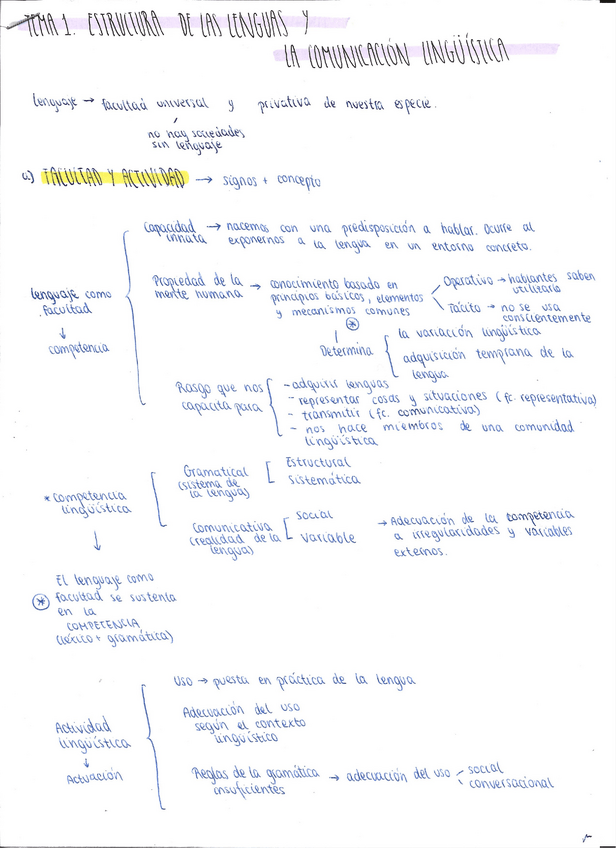 TEMA 1. ESTRUCTURA DE LAS LENGUAS Y
LA COMUNICACIÓN LINGÜÍSTICA
Lenguaje → facultad universal y privativa de nuestra especie.
no hay sociedades
sin lenguaje
a) FACULTAD Y ACTIVIDAD → signos + concepto
Capacidad innata → nacemos con una predisposición a hablar. Ocurre al
exponernos a la lengua en un entorno concreto.
Lenguaje como
facultad
↓
competencia
Propiedad de la
mente humana → conocimiento basado en
principios básicos, elementos
y mecanismos comunes
Operativo → hablantes saben
utilizarlo
Tácito → no se usa
conscientemente
*
Determina
la variación lingüística
adquisición temprana de la
lengua
Rasgo que nos
capacita para
- adquirir lenguas
- representar cosas y situaciones (fc. representativa)
- transmitir (fc. comunicativa)
- nos hace miembros de una comunidad
lingüística
* competencia
lingüística
Gramatical
(sistema de
la lengua)
Estructural
Sistemática
Comunicativa
(realidad de la
lengua)
Social
Variable
→ Adecuación de la competencia
a irregularidades y variables
externos.
↓
* El lenguaje como
facultad se sustenta
en la
COMPETENCIA
(léxico + gramática)
Actividad
lingüística
↓
Actuación
Uso → puesta en práctica de la lengua
Adecuación del uso
según el contexto
lingüístico
Reglas de la gramática
insuficientes → adecuación del uso
social
conversacional